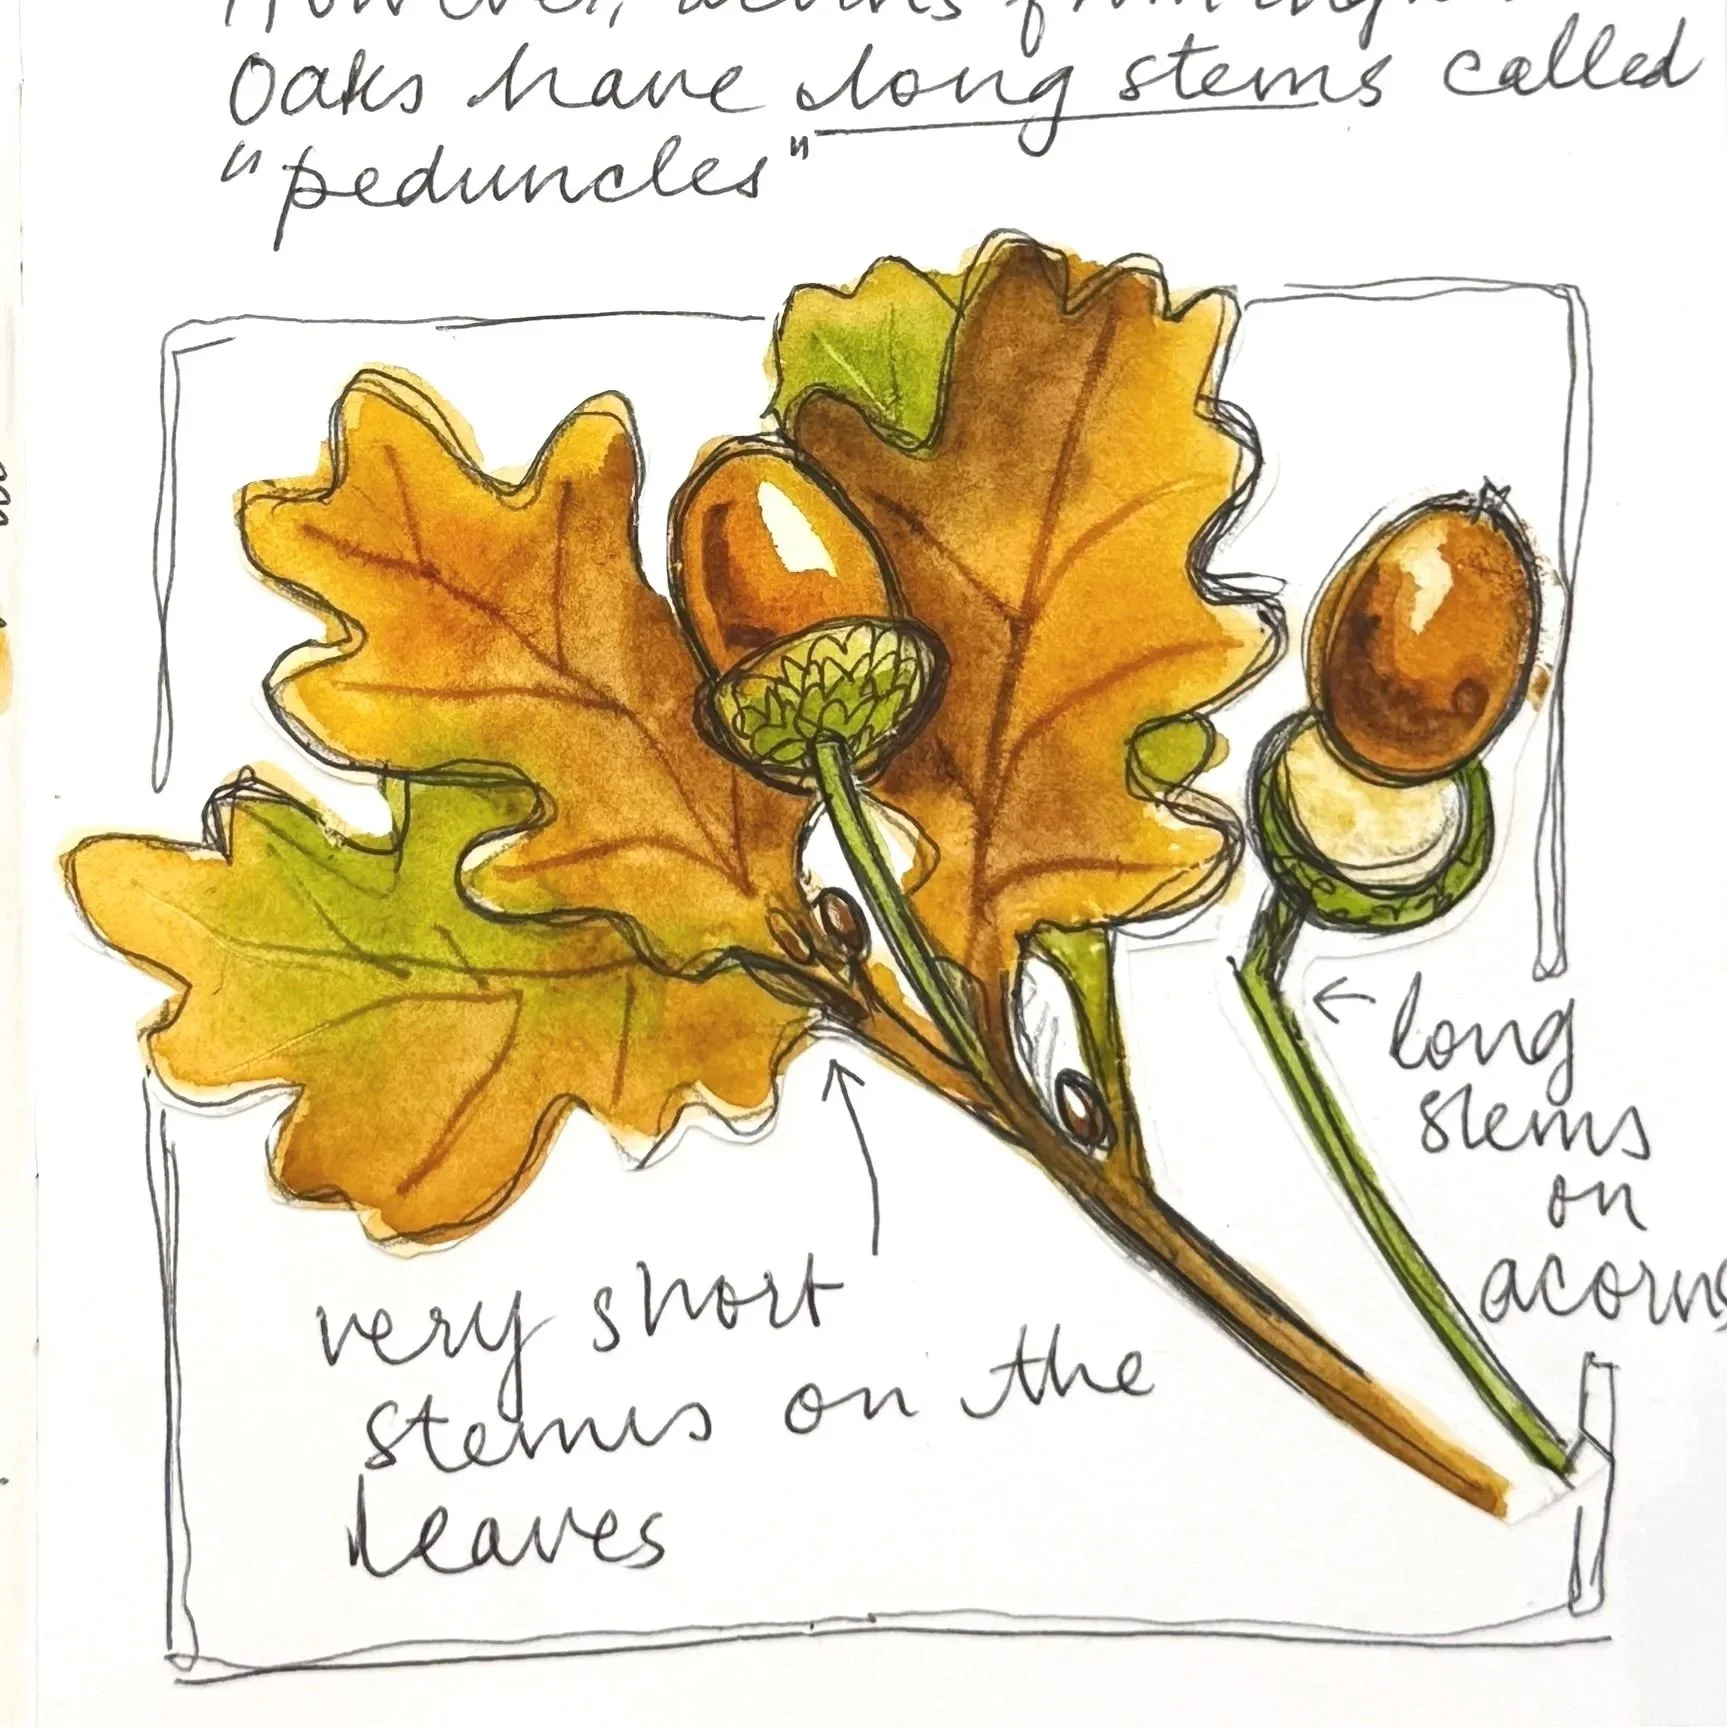 However, acorns from
Oaks have long stems called
"peduncles"
long
stems
on
acorns
very short
stems on the
leaves